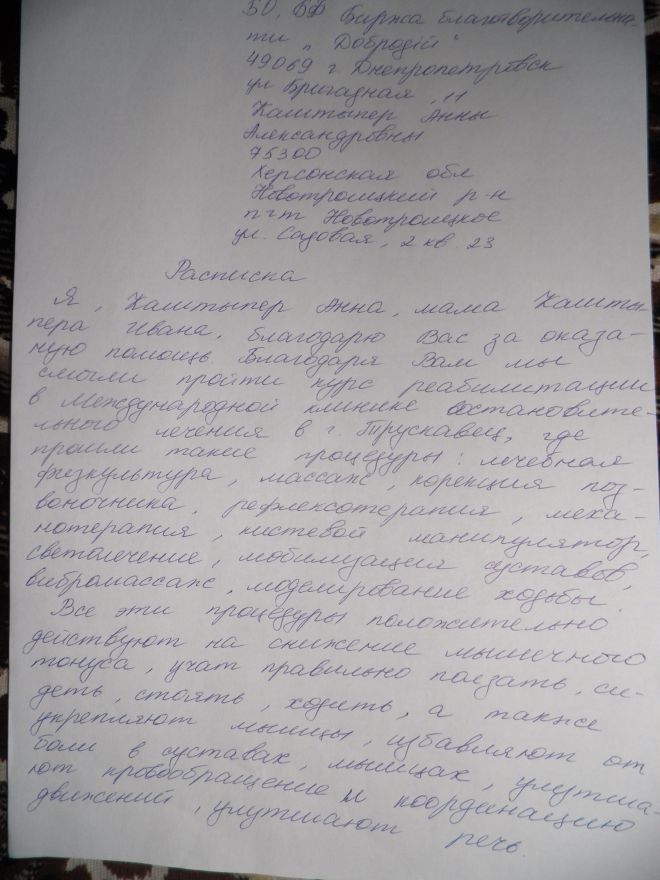 БО, БФ Биржа благотворительно-
ти „Добродій"
49069 г. Днепропетровск
ул Бригадная, 11
Каштыпер Анны
Александровны
75300
Херсонская обл
Новотроицкий р-н
пгт Новотроицкое
ул. Садовая, 2 кв 23
Расписка
Я, Каштыпер Анна, мама Кашты-
пера Ивана, благодарю Вас за оказа-
ную помощь. Благодаря Вам мы
смогли пройти курс реабилитации
в Международной клинике востановите-
льного лечения в г. Трускавец, где
прошли такие процедуры: лечебная
физкультура, массаж, корекция поз-
воночника, рефлексотерапия, меха-
нотерапия, кистевой манипулятор,
светолечение, мобилизация суставов,
вибромассаж, моделирование ходьбы.
Все эти процедуры положительно
действуют на снижение мышечного
тонуса, учат правильно ползать, си-
деть, стоять, ходить, а также
укрепляют мышцы, избавляют от
боли в суставах, мышцах, улутша-
ют кровообращение и координацию
движений, улутшают речь.